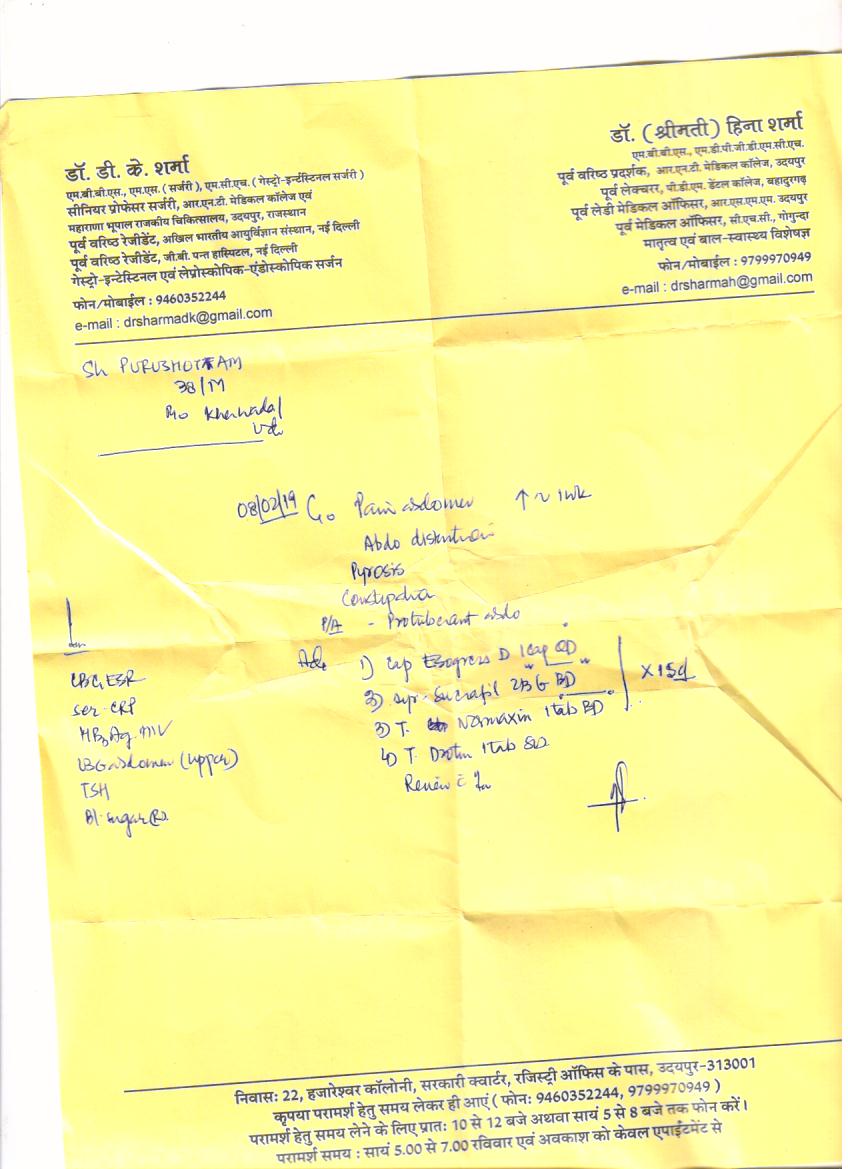 डॉ. डी. के. शर्मा
एम.बी.बी.एस., एम.एस. ( सर्जरी ), एम.सी.एच. ( गेस्ट्रो-इन्टेंस्टिनल सर्जरी )
सीनियर प्रोफेसर सर्जरी, आर.एन.टी. मेडिकल कॉलेज एवं
महाराणा भूपाल राजकीय चिकित्सालय, उदयपुर, राजस्थान
पूर्व वरिष्ठ रेजीडेंट, अखिल भारतीय आयुर्विज्ञान संस्थान, नई दिल्ली
पूर्व वरिष्ठ रेजीडेंट, जी.बी. पन्त हास्पिटल, नई दिल्ली
गेस्ट्रो-इन्टेस्टिनल एवं लेप्रोस्कोपिक-एंडोस्कोपिक सर्जन
फोन/मोबाईल : 9460352244
e-mail : drsharmadk@gmail.com
डॉ. (श्रीमती) हिना शर्मा
एम.बी.बी.एस., एम.डी.पी.जी.डी.एम.सी.एच.
पूर्व वरिष्ठ प्रदर्शक, आर.एन.टी. मेडिकल कॉलेज, उदयपुर
पूर्व लेक्चरर, पी.डी.एम. डेंटल कॉलेज, बहादुरगढ़
पूर्व लेडी मेडिकल ऑफिसर, आर.एस.एम.एम. उदयपुर
पूर्व मेडिकल ऑफिसर, सी.एच.सी., गोगुन्दा
मातृत्व एवं बाल-स्वास्थ्य विशेषज्ञ
फोन/मोबाईल : 9799970949
e-mail : drsharmah@gmail.com
Sh PURUSHOTTAM
38/M
R/o Kherwada/
Udr
08/02/19 C/o Pain abdomen ↑ ~ 1 wk
Abdo distention
Pyrosis
Constipation
P/A - Protuberant abdo
Adv 1) Cap Esogress D 1 cap OD
2) Syr. Sucrafil 2 BD
3) T. Normaxin 1 tab BD
x 15d
4) T. Drotin 1 tab
Review
CBC ESR
Ser. CRP
HBsAg. HIV
USG abdomen (upper)
TSH
Bl. sugar (R).
निवासः 22, हजारेश्वर कॉलोनी, सरकारी क्वार्टर, रजिस्ट्री ऑफिस के पास, उदयपुर-313001
कृपया परामर्श हेतु समय लेकर ही आएं ( फोनः 9460352244, 9799970949 )
परामर्श हेतु समय लेने के लिए प्रातः 10 से 12 बजे अथवा सायं 5 से 8 बजे तक फोन करें।
परामर्श समय : सायं 5.00 से 7.00 रविवार एवं अवकाश को केवल एपाईंटमेंट से